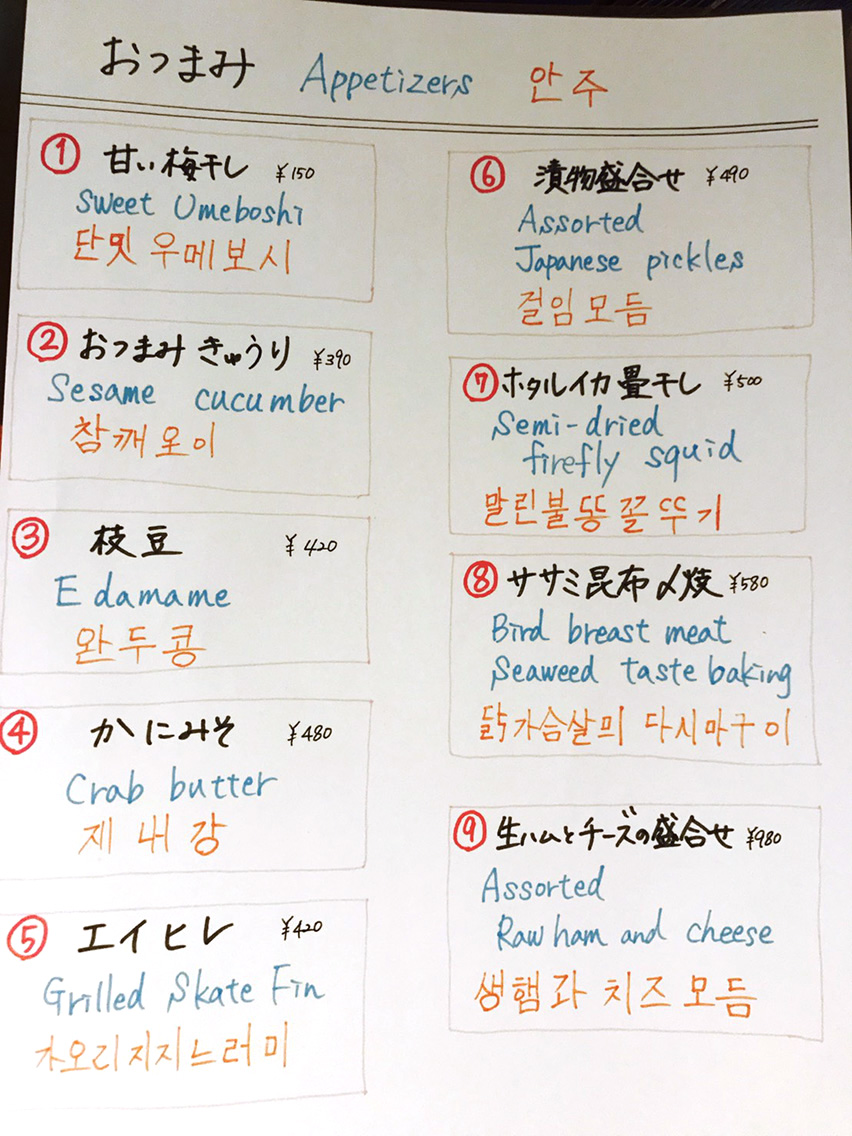 おつまみ Appetizers 안주
① 甘い梅干し ¥150
Sweet Umeboshi
단맛 우메보시
② おつまみきゅうり ¥390
Sesame cucumber
참깨오이
③ 枝豆 ¥420
Edamame
완두콩
④ かにみそ ¥480
Crab butter
게 내장
⑤ エイヒレ ¥420
Grilled Skate Fin
가오리지지느러미
⑥ 漬物盛合せ ¥490
Assorted
Japanese pickles
걸임모듬
⑦ ホタルイカ畳干し ¥500
Semi-dried
firefly squid
말린불똥꼴뚜기
⑧ ササミ昆布〆焼 ¥580
Bird breast meat
Seaweed taste baking
닭가슴살의 다시마구이
⑨ 生ハムとチーズの盛合せ ¥980
Assorted
Raw ham and cheese
생햄과 치즈모듬